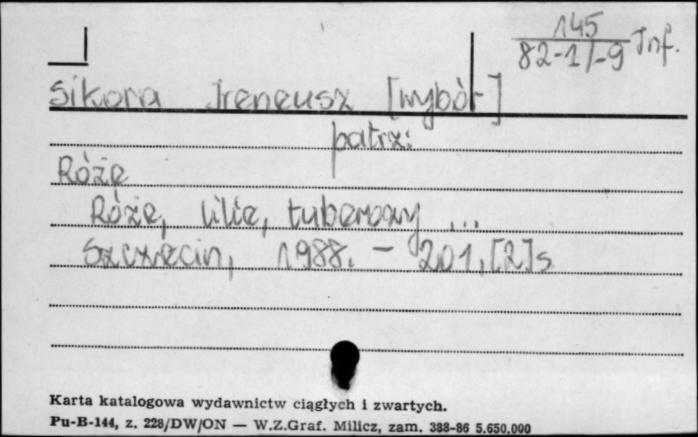 145
82-1/-9 Inf.
Sikora Ireneusz [wybór]
patrz:
Róże
Róże, lilie, tuberozy ...
Szczecin, 1988. - 201,[2]s
Karta katalogowa wydawnictw ciągłych i zwartych.
Pu-B-144, z. 228/DW/ON — W.Z.Graf. Milicz, zam. 388-86 5.650.000